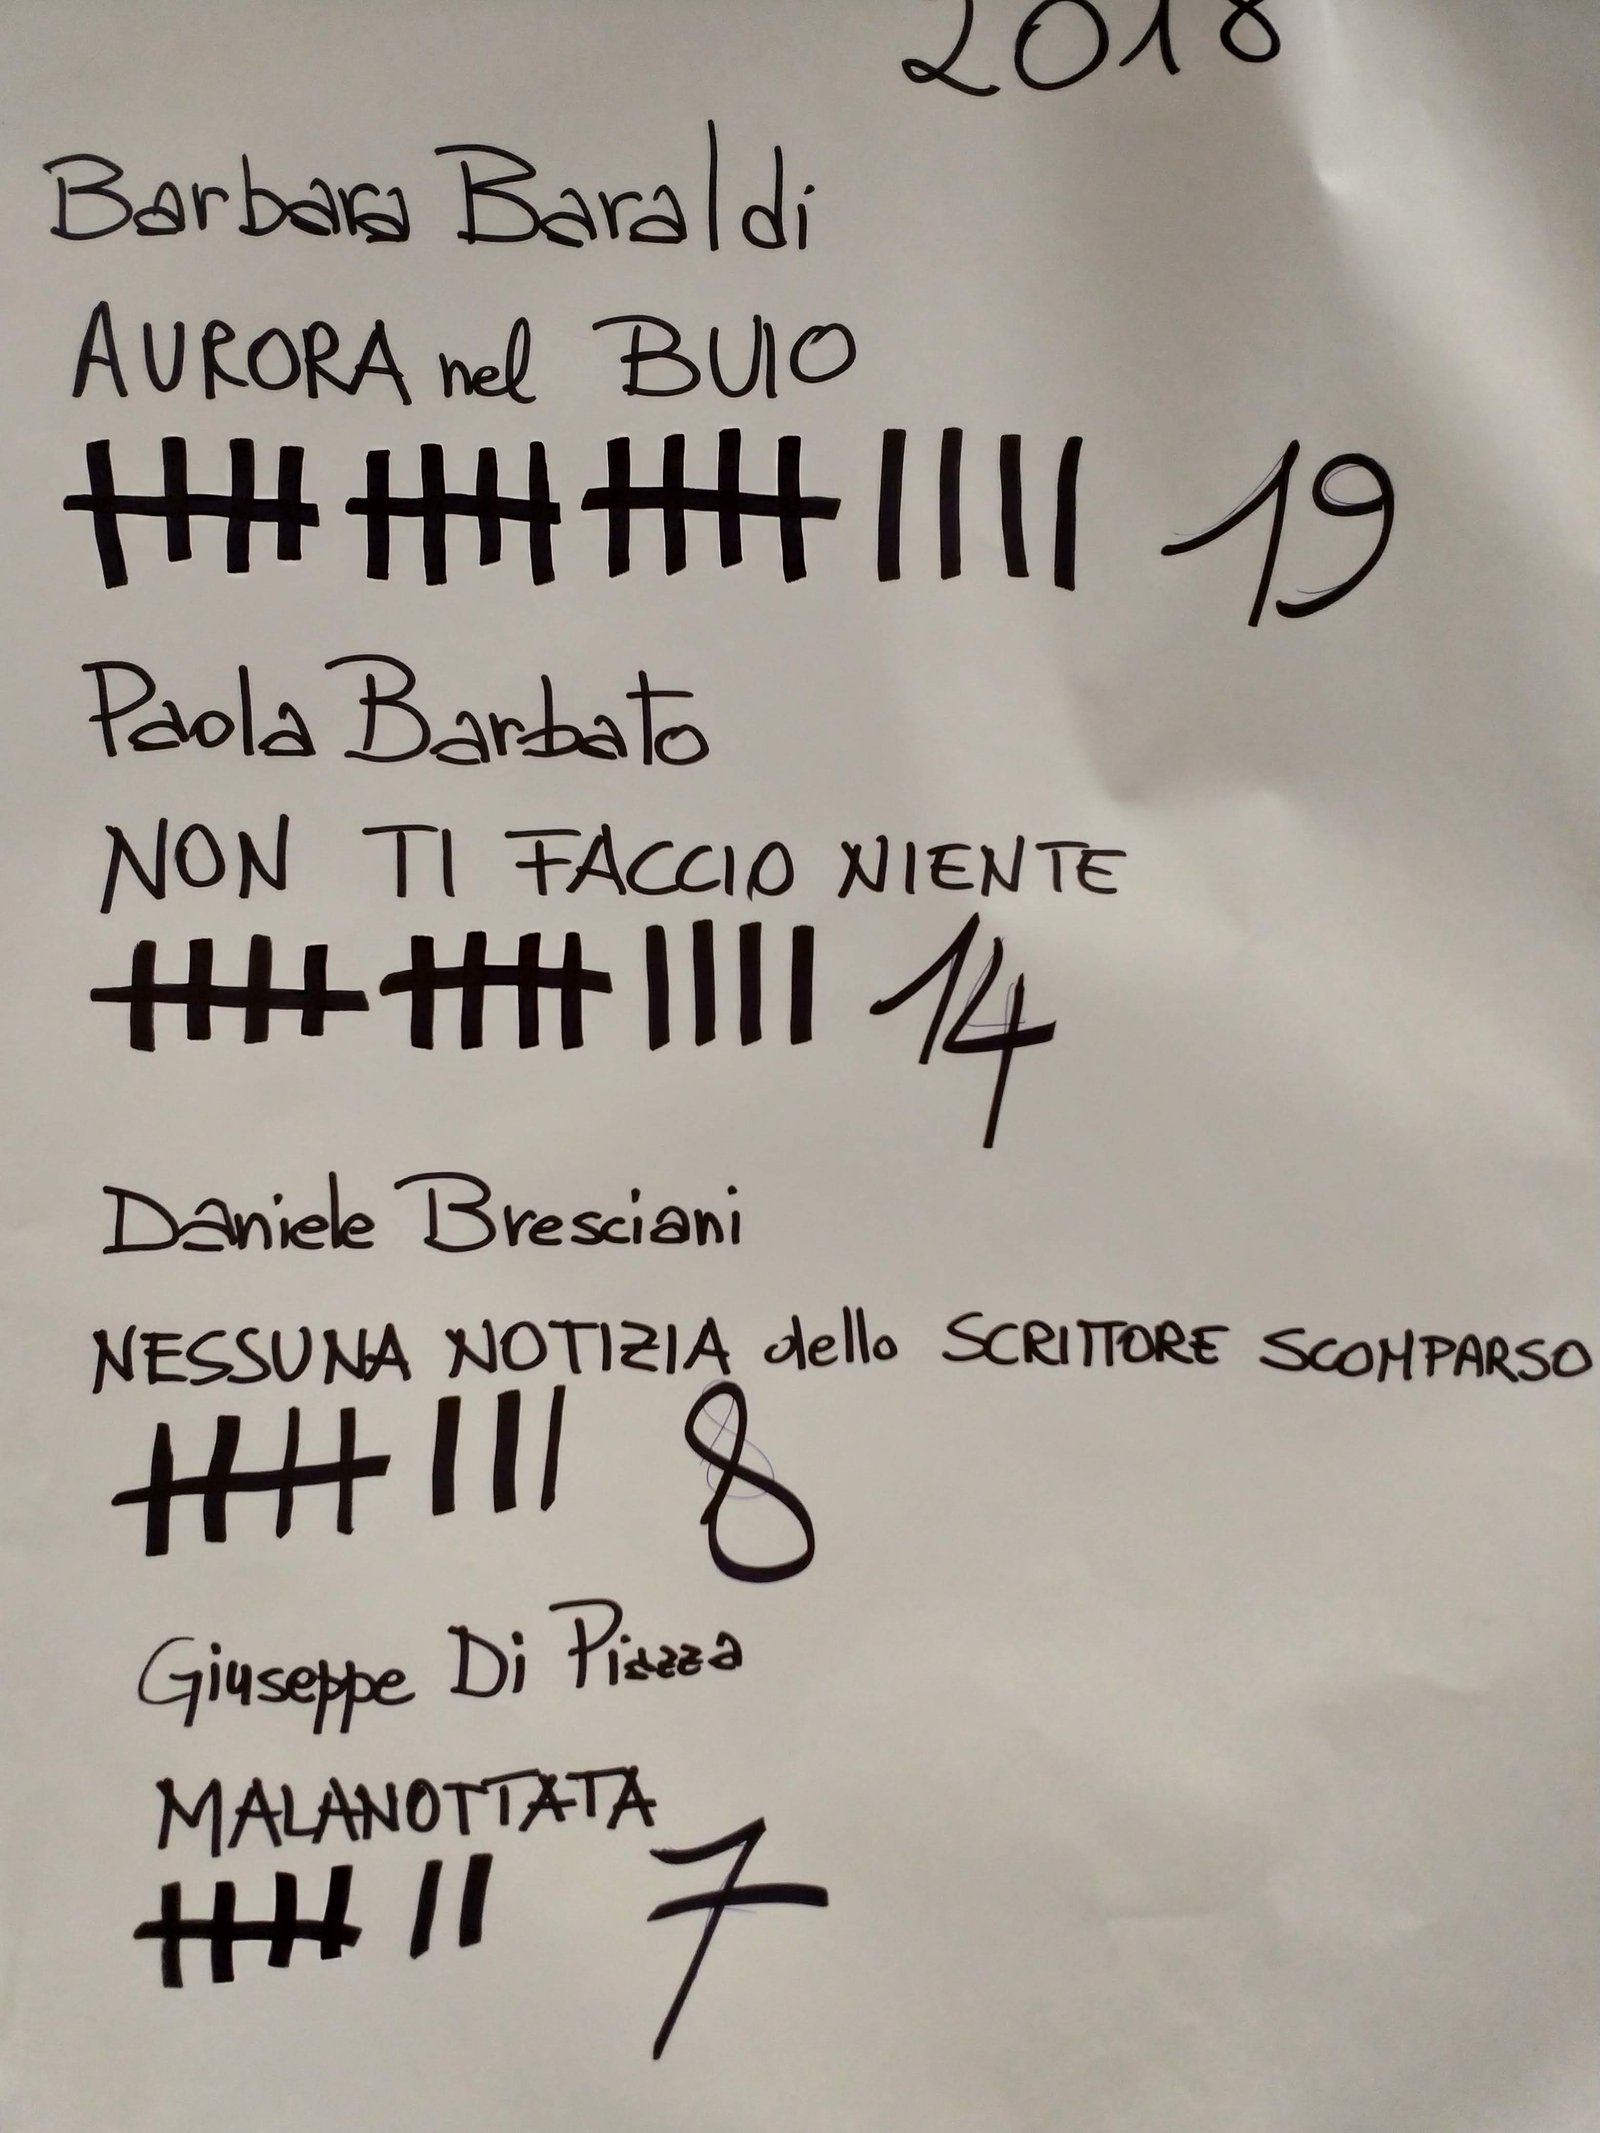 2018
Barbara Baraldi
AURORA nel BUIO
19
Paola Barbato
NON TI FACCIO NIENTE
14
Daniele Bresciani
NESSUNA NOTIZIA dello SCRITTORE SCOMPARSO
8
Giuseppe Di Piazza
MALANOTTATA
7